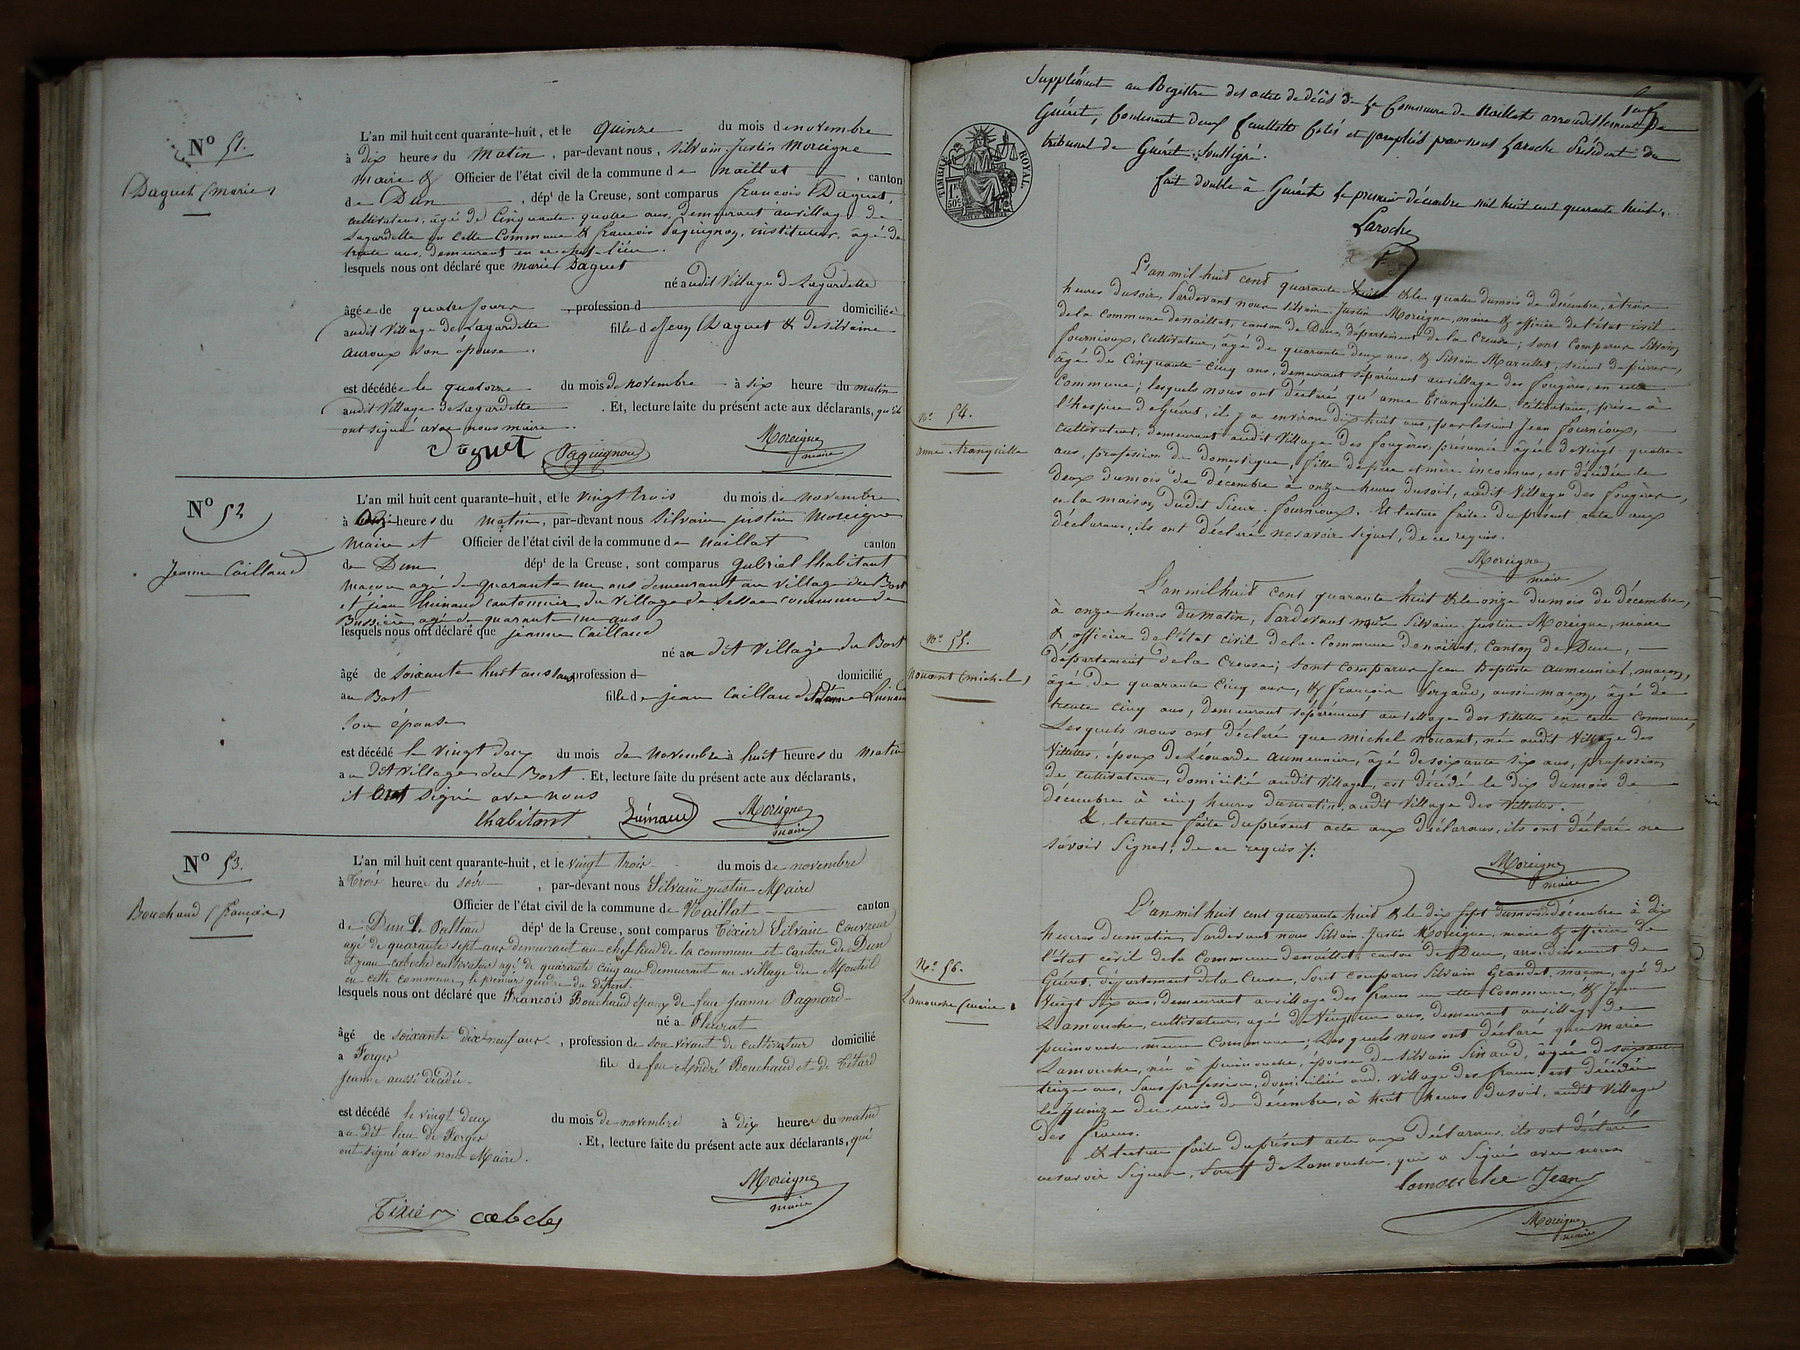 N° 51.
Daguet (marie)
L'an mil huit cent quarante-huit, et le quinze du mois de novembre
à dix heures du matin, par-devant nous, Silvain-Justin Moreigne
maire & Officier de l'état civil de la commune de naillat, canton
de Dun, dépt de la Creuse, sont comparus françois Daguet,
cultivateur, âgé de Cinquante quatre ans, demeurant au village de
Lagardette en cette Commune & françois Paquignon, instituteur, âgé de
trente ans, demeurant en ce chef-lieu.
lesquels nous ont déclaré que marie Daguet
né audit Village de Lagardette
âgée de quatre jours, profession d domiciliée
audit Village de Lagardette fille de Jean Daguet & de silvaine
auroux son épouse.
est décédée le quatorze du mois de novembre à six heure du matin
audit Village de Lagardette. Et, lecture faite du présent acte aux déclarants, qui
ont signé avec nous maire.
Daguet Paquignon Moreigne
maire
N° 52
Jeanne Caillaud
L'an mil huit cent quarante-huit, et le vingt trois du mois de novembre
à heures du matin, par-devant nous Silvain justin Moreigne
Maire et Officier de l'état civil de la commune de naillat canton
de Dun dépt de la Creuse, sont comparus Gabriel Lhabitant
maçon agé de quarante un ans demeurant au village du Bost
et jean cantonnier du village de commune de
Bussiere agé de quarant un ans
lesquels nous ont déclaré que jeanne Caillaud
né au dit Village du Bost
âgé de soixante huit ans sans profession d domicilié
au Bost fille de jean Caillaud
Son épouse
est décédé le vingt deux du mois de novembre à huit heures du matin
au dit village du Bost. Et, lecture faite du présent acte aux déclarants,
il ont signé avec nous
Lhabitant Moreigne
maire
N° 53.
Bouchaud (françois)
L'an mil huit cent quarante-huit, et le vingt trois du mois de novembre
à trois heures du soir, par-devant nous Silvain justin Maire
Officier de l'état civil de la commune de Naillat canton
de Dun le Palleau dépt de la Creuse, sont comparus Tixier Silvain Couvreur
agé de quarante sept ans demeurant au chef lieu de la commune et Canton de Dun
et jean caboche cultivateur agé de quarante cinq ans demeurant au village du Monteil
en cette commune, le premier gendre du défunt.
lesquels nous ont déclaré que François Bouchaud époux de feue jeanne Pagnard
né a Fleurat
âgé de soixante dix-neuf ans, profession de son vivant de cultivateur domicilié
a Forges fils de feu André Bouchaud et de Tétard
Jeanne aussi décédée
est décédé le vingt deux du mois de novembre à dix heures du matin
au dit lieu de Forges. Et, lecture faite du présent acte aux déclarants, qui
ont signé avec nous Maire.
Moreigne
maire
Tixier
Supplément au Registre des actes de décès de la Commune de Naillat arrondissement de
Guéret, Contenant deux feuillets cotés et paraphés par nous Laroche Président du
tribunal de Guéret, soussigné.
fait double à Guéret le premier décembre mil huit cent quarante huit.
Laroche
TIMBRE ROYAL
n° 54.
anne tranquille
L'an mil huit cent quarante huit & le quatre du mois de décembre, à trois
heures du soir, Pardevant nous Silvain-Justin Moreigne, maire & officier de l'état civil
de la commune de naillat, canton de Dun, département de la Creuse; sont comparus Silvain
fournioux, Cultivateur, âgé de quarante deux ans, & Silvain Marcillet, scieur de pierres,
âgé de Cinquante Cinq ans, demeurant séparément au village des fougères, en cette
Commune; lesquels nous ont déclaré qu'anne tranquille, Célibataire, prise à
l'hospice de Guéret, il y a environ dix huit ans, par le sieur Jean fournioux,
cultivateur, demeurant audit Village des fougères, présumée âgée de vingt quatre
ans, profession de domestique, fille de père et mère inconnus, est décédée le
Deux du mois de décembre à onze heures du soir, audit Village des fougères,
en la maison dudit Sieur fournioux. Et lecture faite du présent acte aux
déclarans, ils ont déclaré ne savoir signer, de ce requis.
Moreigne
maire
n° 55.
nouant (michel)
L'an mil huit cent quarante huit & le onze du mois de décembre,
à onze heures du matin, Pardevant nous Silvain-Justin Moreigne, maire
& officier de l'état civil de la Commune de naillat, Canton de Dun,
département de la Creuse; sont comparus Jean Baptiste aumeunier, maçon,
âgé de quarante Cinq ans, & françois aussi maçon, agé de
trente cinq ans, demeurant séparément au village des Villettes en cette commune,
Lesquels nous ont déclaré que michel nouant, né audit Village des
Villettes, époux de Léonarde aumeunier, âgé de soixante six ans, profession
de cultivateur, domicilié audit Village, est décédé le dix du mois de
décembre à cinq heures du matin, audit Village des Villettes.
& lecture faite du présent acte aux déclarans, ils ont déclaré ne
savoir Signer, de ce requis.
Moreigne
maire
N° 56.
Lamouche (marie)
L'an mil huit cent quarante huit & le dix sept du mois de décembre à dix
heures du matin, Pardevant nous Silvain Justin Moreigne, maire & officier de
l'état civil de la Commune de naillat canton de Dun, arrondissement de
Guéret, département de la Creuse, Sont comparus Silvain Grandet, maçon, agé de
Vingt six ans, demeurant au village des franes en cette Commune, & Jean
Lamouche, cultivateur, agé de Vingt un ans, demeurant au village de
même Commune; Lesquels nous ont déclaré que marie
Lamouche, née à épouse de Silvain âgée de soixante
treize ans, Sans profession, domiciliée aud. village des franes, est décédée
le quinze du mois de décembre, à huit heures du soir, audit Village
des franes.
& lecture faite du présent acte aux déclarans, ils ont déclaré
ne savoir Signer, Sauf de Lamouche, qui a Signé avec nous
lamouche Jean
Moreigne
maire